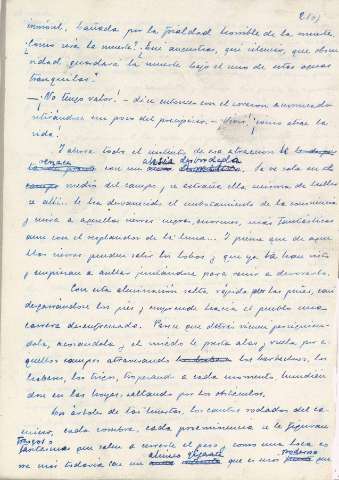 inmóvil, bañada por la frialdad horrible de la muerte.
¿Cómo será la muerte? ¿Qué angustias, qué silencio, qué obscu
ridad guardará la muerte bajo el uno de estas aguas
tranquilas?
—¡No tengo valor! — dice entonces con el corazon acongojado
retirándose un poco del precipicio. — ¡Vivir! ¡cómo atrae la
vida!
Y ahora todo el instinto de esa atraccion
vence a con una desbordada. Se ve sola en el
medio del campo, se extraña ella misma de hallar
se allí... le ha desvanecido el embotamiento de la conciencia
y mira a aquellas nieves negras, enormes, más fantásticas
aun con el resplandor de la luna... Y piensa que de aque
llas nieves pueden salir los lobos y que ya la han visto
y empiezan a aullar juntándose para venir a devorarla.
Con esta alucinación salta rápida por las peñas,
desgarrándose los pies y emprende hacia el pueblo una
carrera desenfrenada. Parece que detrás vienen persiguien
dola, acosándola y el miedo le presta alas, y vuela por a-
quellos campos atravesando los barbechos, los
los trigos, tropezando a cada momento, hundien
dose en las hoyas, saltando por los obstáculos.
Los árboles de las huertas, los cantos rodados del ca-
mino, cada sombra, cada prominencia se le figuran
fantasmas que salen a cortarle el paso, como una loca co-
rre más todavía con un gigante que es más que